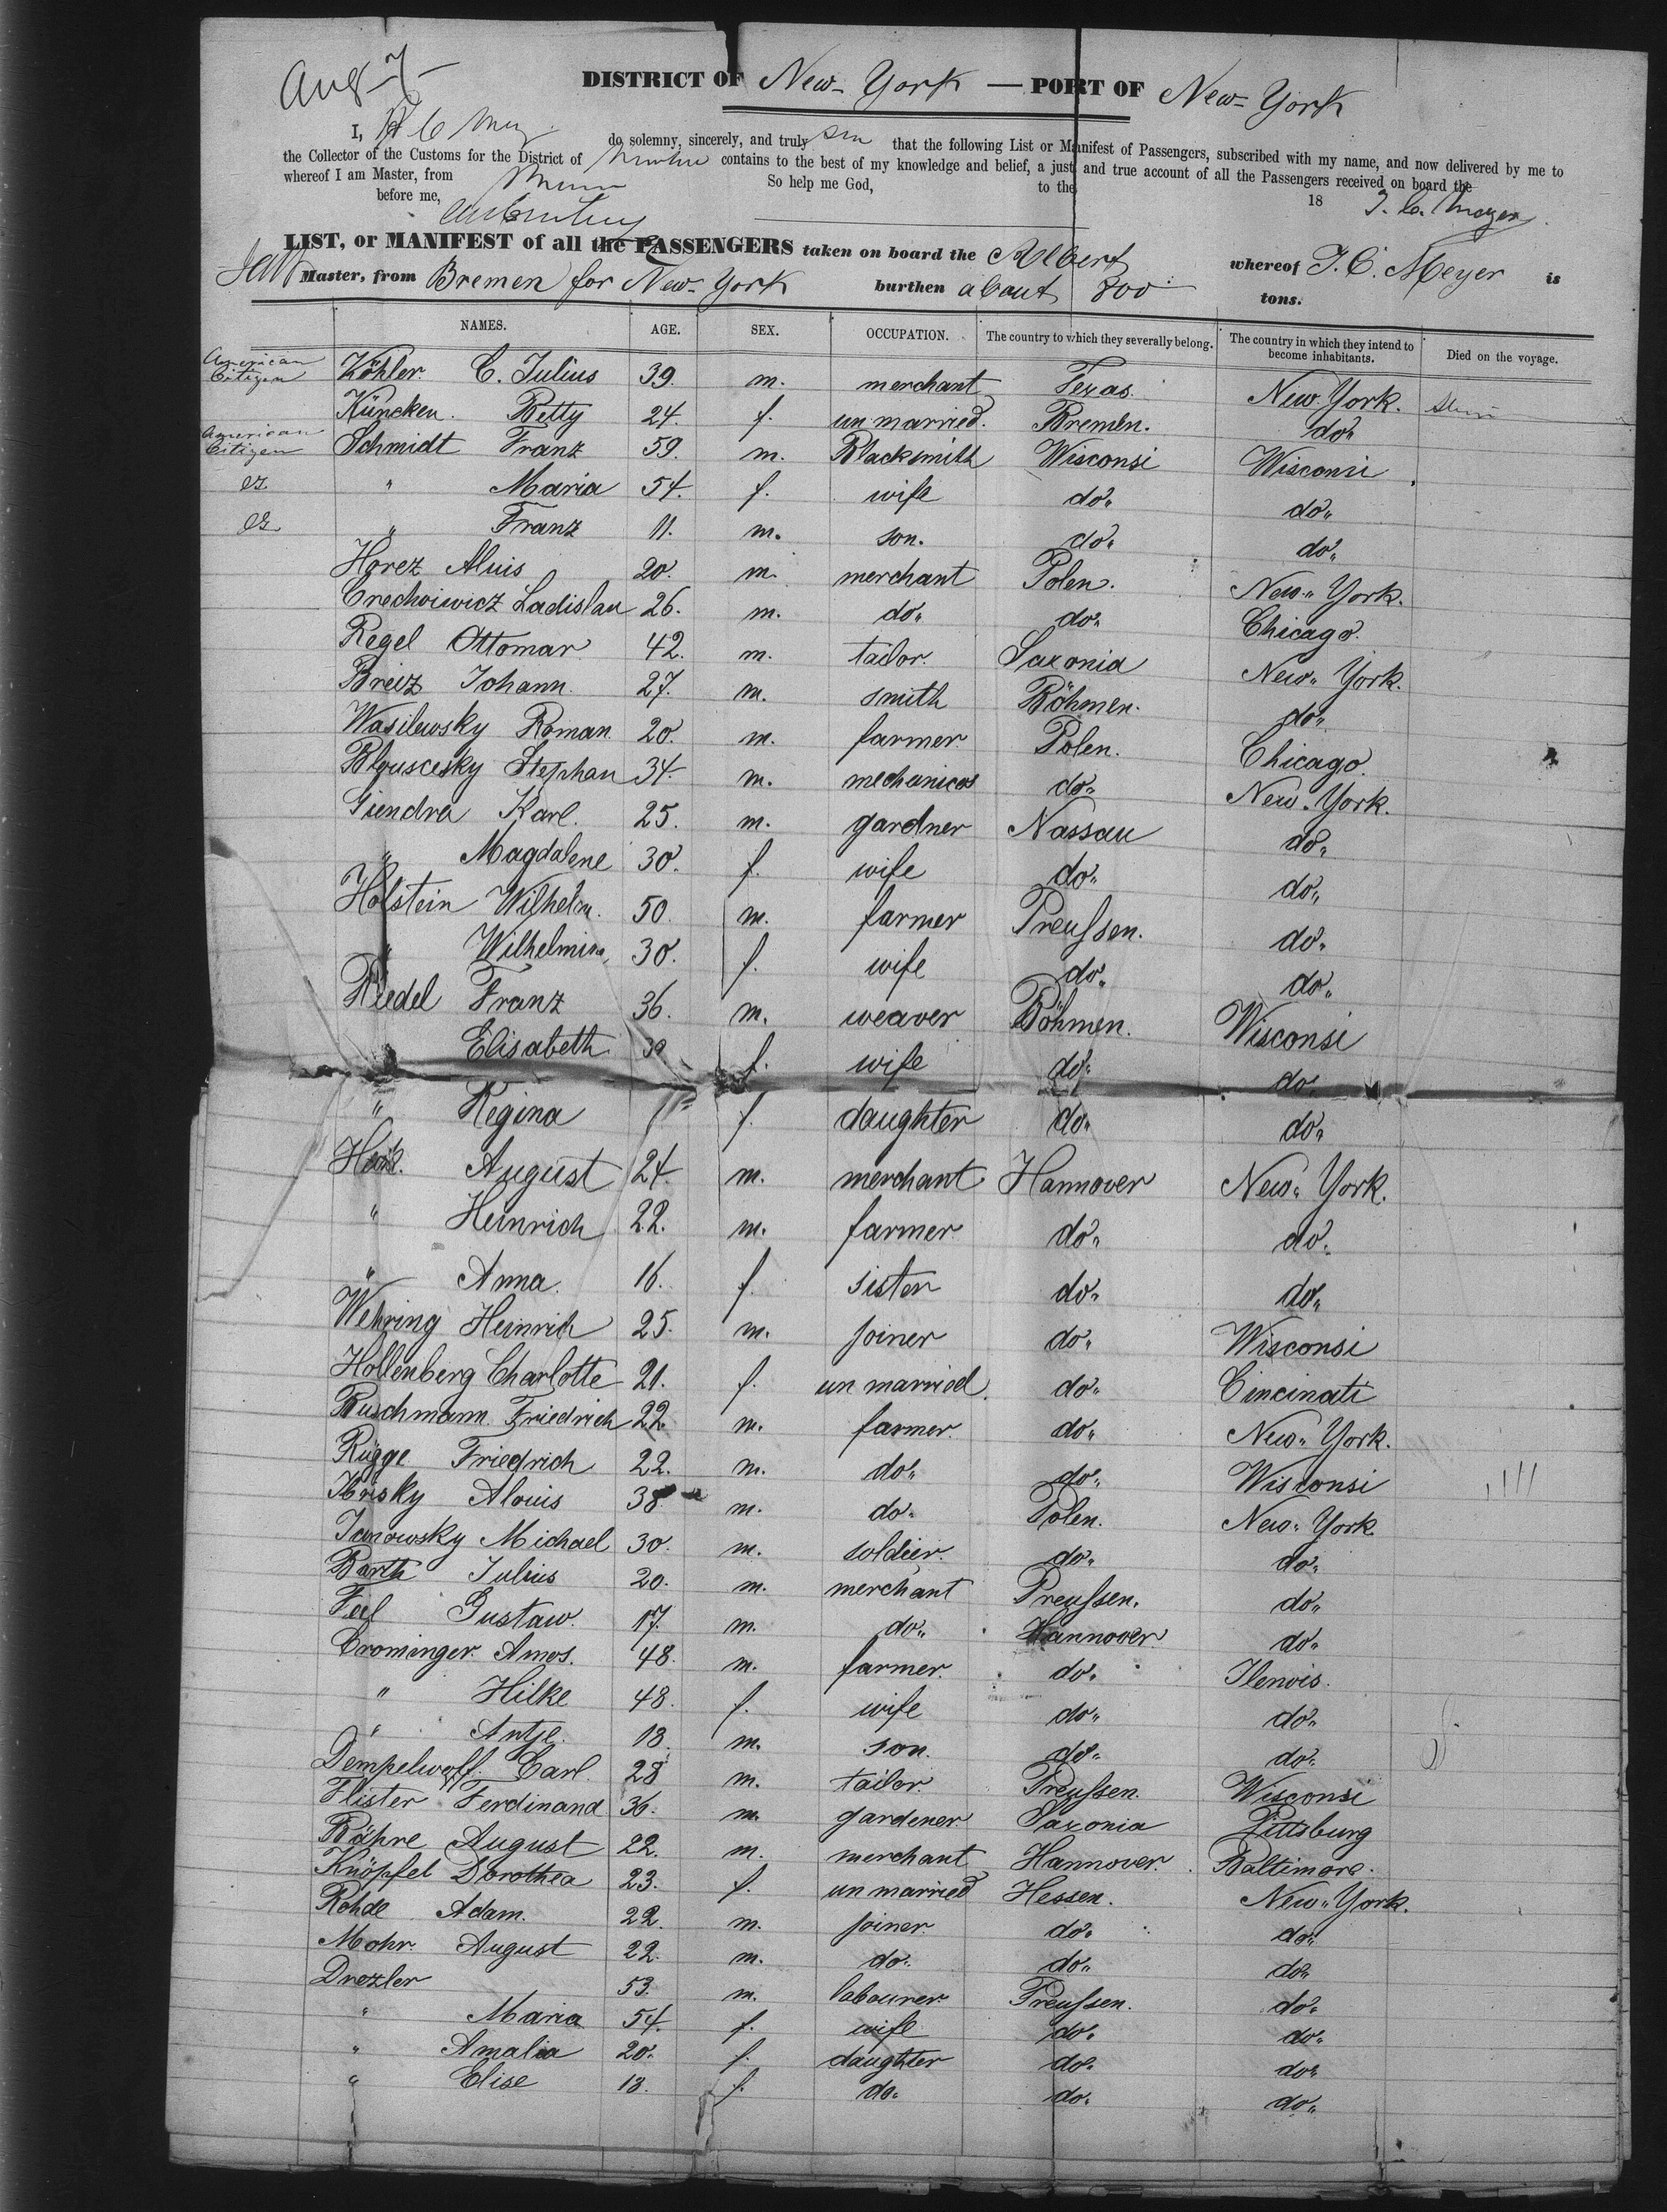 Aug 7
DISTRICT OF New-York — PORT OF New-York
I, do solemny, sincerely, and truly that the following List or Manifest of Passengers, subscribed with my name, and now delivered by me to
the Collector of the Customs for the District of contains to the best of my knowledge and belief, a just and true account of all the Passengers received on board the
whereof I am Master, from So help me God, to the 18
before me,
LIST, or MANIFEST of all the PASSENGERS taken on board the Albert whereof J. C. Meyer is
Master, from Bremen for New-York burthen about 800 tons.
NAMES. AGE. SEX. OCCUPATION. The country to which they severally belong. The country in which they intend to become inhabitants. Died on the voyage.
American Citizen Köhler. C. Julius 39. m. merchant Texas. New York.
Küncken. Betty 24. f. un married. Bremen. do"
American Citizen Schmidt Franz 59. m. Blacksmith Wisconsi Wisconsi
" Maria 54. f. wife do" do"
" Franz 11. m. son. do" do"
Horez Aluis 20. m. merchant Polen. New-York.
Crechwiwicz Ladislau 26. m. do" do" Chicago.
Regel Ottomar 42. m. tailor. Saxonia New-York.
Breiz Johann. 27. m. smith Böhmen. do"
Wasilewsky Roman 20. m. farmer. Polen. Chicago.
Blouscesky Stephan 34. m. mechanicos do" New-York.
Giendra Karl. 25. m. gardner Nassau do"
" Magdalene 30. f. wife do" do"
Holstein Wilhelm. 50. m. farmer Preussen. do"
" Wilhelmina 30. f. wife do" do"
Riedel Franz 36. m. weaver Böhmen. Wisconsi
Elisabeth 30 f. wife do" do"
" Regina f. daughter do" do"
August 24. m. merchant Hannover New-York.
" Heinrich 22. m. farmer do" do"
" Anna. 16. f. sister do" do"
Wehring Heinrich 25. m. joiner do" Wisconsi
Hollenberg Charlotte 21. f. un married. do" Cincinati
Buschmann Friedrich 22. m. farmer. do" New-York.
Rügge Friedrich 22. m. do" do" Wisconsi
Alouis 38. m. do" Polen. New-York
Janowsky Michael 30. m. soldier. do" do"
Barth Julius 20. m. merchant Preussen. do"
Gustaw. 17. m. do" Hannover. do"
Crominger. Amos. 48. m. farmer. do" Ilenois.
" Hilke 48. f. wife do" do"
" Antje. 13. m. son. do" do"
Dempelwolff. Carl. 28 m. tailor. Preussen. Wisconsi
Flister Ferdinand 36. m. gardener Saxonia Pittsburg
Bähre August 22. m. merchant Hannover. Baltimore.
Knöpfel Dorothea 23. f. un married Hessen. New-York.
Rohde Adam. 22. m. joiner. do" do"
Mohr. August 22. m. do" do" do"
Drezler 53. m. labourer Preussen. do"
" Maria 54. f. wife do" do"
" Amalia 20. f. daughter do" do"
" Elise 13. f. do" do" do"